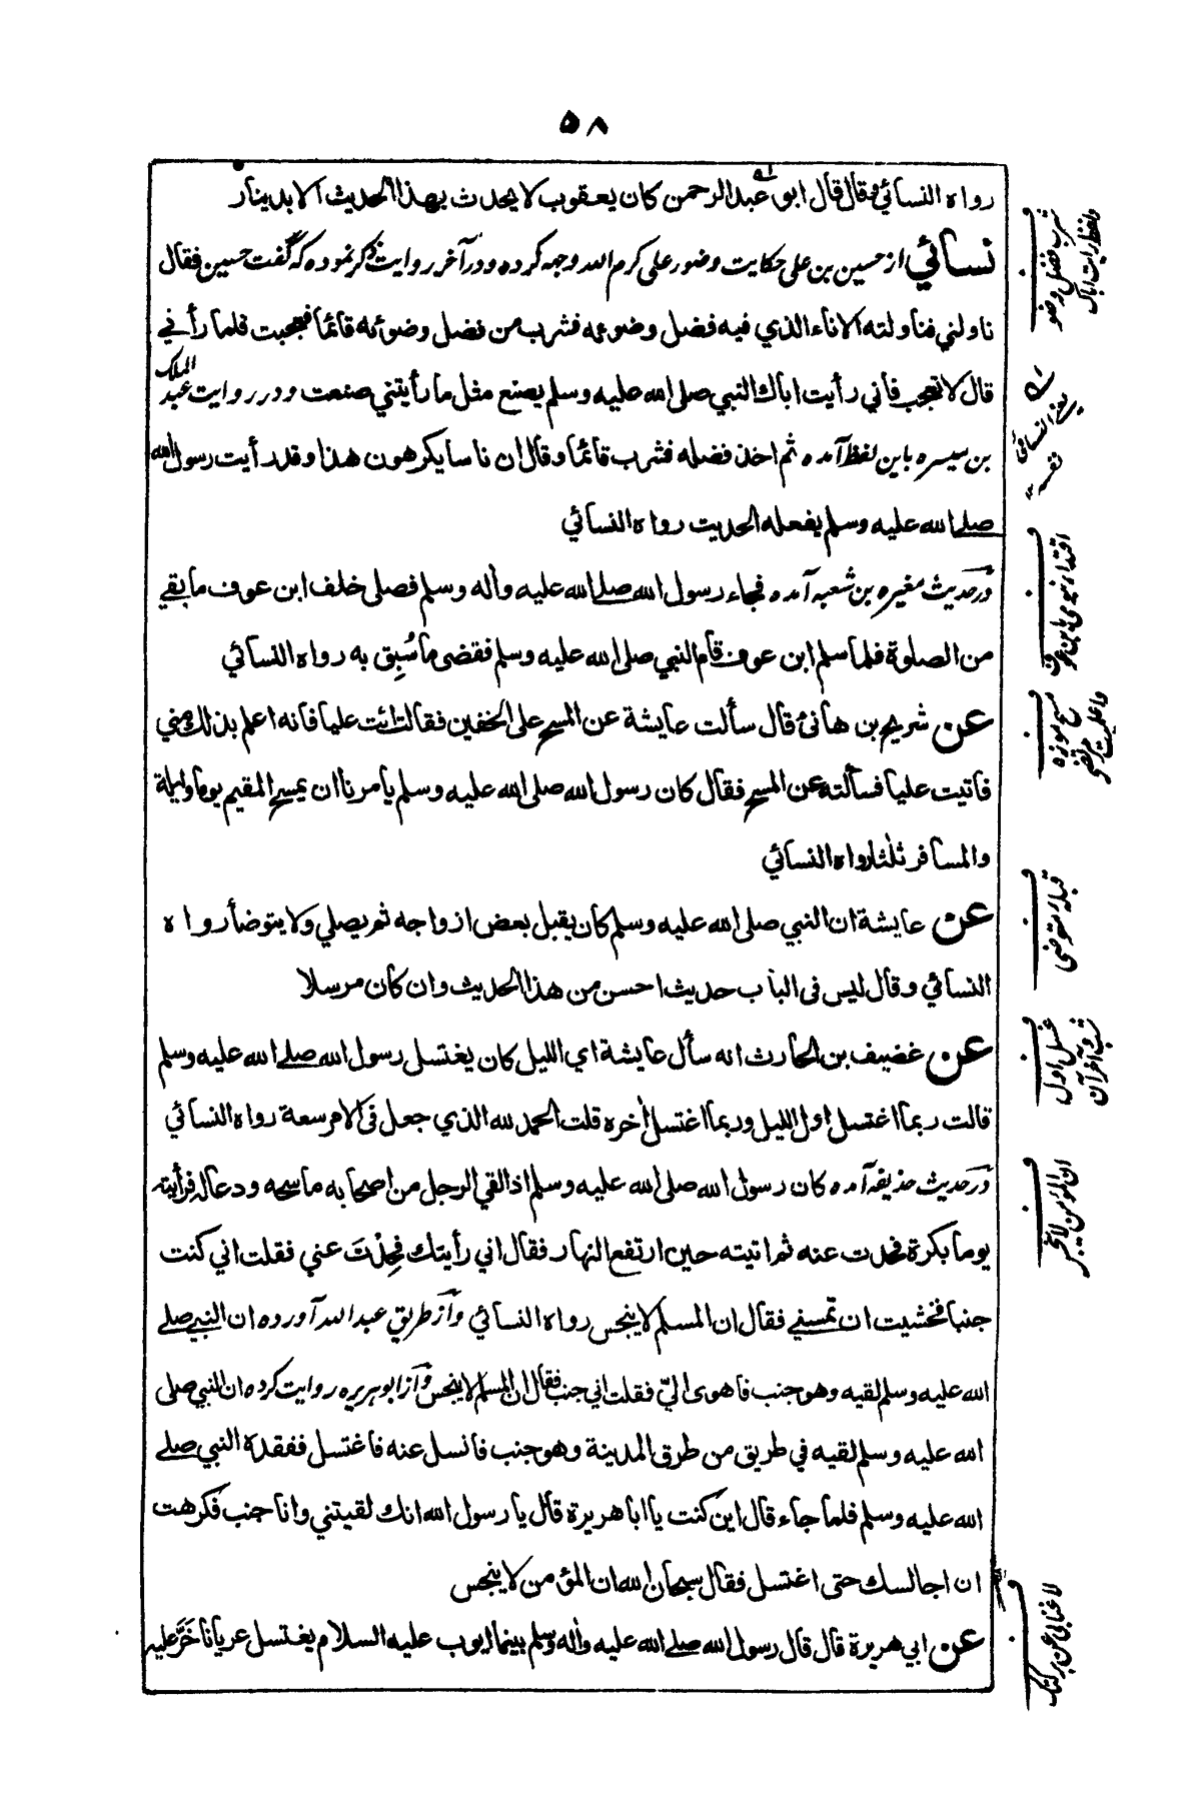 ٥٨
رواه النسائي وقال قال ابو عبد الرحمن كان يعقوب لا يحدث بهذا الحديث الا بدينار
نسائي از حسين بن علي حكايت وضوء على كرم الله وجهه كرده ودر آخر روايت ذكر نموده كه گفت حسين فقال
ناولني فناولته الاناء الذي فيه فضل وضوءه فشرب من فضل وضوئه قائما فعجبت فلما رأني
قال لا تعجب فاني رأيت اباك النبي صلى الله عليه وسلم يصنع مثل ما رأيتني صنعت ودر روايت عبد الملك
بن ميسره باين لفظ آمده ثم اخذ فضله فشرب قائما وقال ان ناسا يكرهون هذا وقد رأيت رسول الله
صلى الله عليه وسلم يفعله الحديث رواه النسائي
ودر حديث مغيره بن شعبه آمده فجاء رسول الله صلى الله عليه واله وسلم فصلى خلف ابن عوف ما بقي
من الصلوة فلما سلم ابن عوف قام النبي صلى الله عليه وسلم فقضى ما سُبِق به رواه النسائي
عن شريح بن هانئ قال سألت عايشة عن المسح على الخفين فقالت ائت عليا فانه اعلم بذلك مني
فاتيت عليا فسألته عن المسح فقال كان رسول الله صلى الله عليه وسلم يأمرنا ان يمسح المقيم يوما وليلة
والمسافر ثلثا رواه النسائي
عن عايشة ان النبي صلى الله عليه وسلم كان يقبل بعض ازواجه ثم يصلي ولا يتوضأ رواه
النسائي وقال ليس فى الباب حديث احسن من هذا الحديث وان كان مرسلا
عن غضيف بن الحارث انه سأل عايشة اي الليل كان يغتسل رسول الله صلى الله عليه وسلم
قالت ربما اغتسل اول الليل وربما اغتسل أخره قلت الحمد لله الذي جعل فى الامر سعة رواه النسائي
ودر حديث حذيفه آمده كان رسول الله صلى الله عليه وسلم اذا لقي الرجل من اصحابه ماسحه ودعا له فرأيته
يوما بكرة فحدت عنه ثم اتيته حين ارتفع النهار فقال اني رأيتك فحِدْتَ عني فقلت اني كنت
جنبا فخشيت ان تمسني فقال ان المسلم لا ينجس رواه النسائي واز طريق عبد الله آورده ان النبي صلى
الله عليه وسلم لقيه وهو جنب فاهوى اليّ فقلت اني جنب فقال ان المسلم لا ينجس واز ابو هريره روايت كرده ان النبي صلى
الله عليه وسلم لقيه في طريق من طرق المدينة وهو جنب فانسل عنه فاغتسل ففقده النبي صلى
الله عليه وسلم فلما جاء قال اين كنت يا ابا هريرة قال يا رسول الله انك لقيتني وانا جنب فكرهت
ان اجالسك حتى اغتسل فقال سبحان الله ان المؤمن لا ينجس
عن ابي هريرة قال قال رسول الله صلى الله عليه واله وسلم بينما ايوب عليه السلام يغتسل عريانا خَرَّ عليه
شرب فضل وضو
ولفظ رأيت اباك
اقتداء نبوي بابن عوف
مسح موزه
واعلميت مرتضى
قبله متوضى
غسل اول
شب وآخر آن
ان المؤمن لا ينجس
لا غنا بي عن بركتك